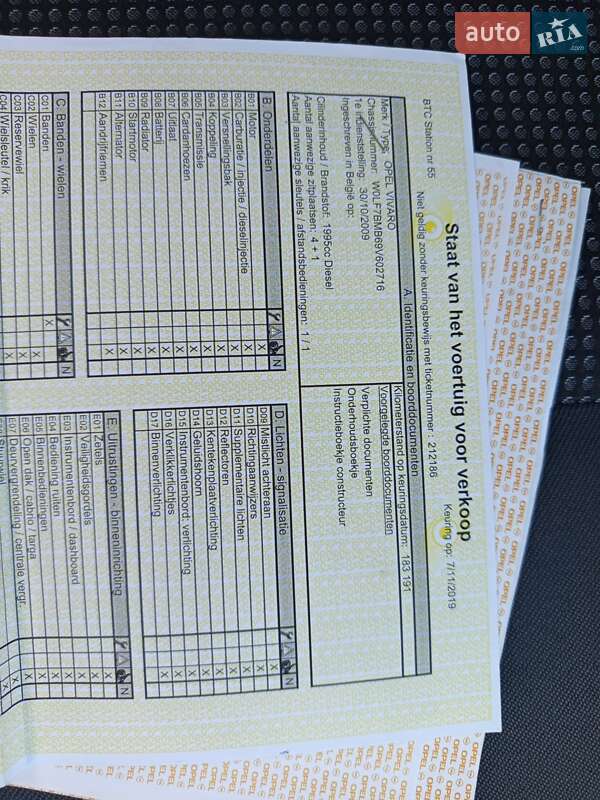 auto RIA .com
BTC Station nr 55
Staat van het voertuig voor verkoop
Keuring op: 7/11/2019
Niet geldig zonder keuringsbewijs met ticketnummer: 212186
A. Identificatie en boorddocumenten
Merk / Type: OPEL VIVARO
Chassisnummer: W0LF7BMB69V602716
1e indienststelling: 30/10/2009
Ingeschreven in België op:
Cilinderinhoud / Brandstof: 1995cc Diesel
Aantal aanwezige zitplaatsen: 4 + 1
Aantal aanwezige sleutels / afstandsbedieningen: 1 / 1
Kilometerstand op keuringsdatum: 183 191
Voorgelegde boorddocumenten
Verplichte documenten
Onderhoudsboekje
Instructieboekje constructeur
B. Onderdelen
N
B01 Motor X
B02 Carburatie / injectie / dieselinjectie X
B03 Versnellingsbak X
B04 Koppeling X
B05 Transmissie X
B06 Cardanhoezen X
B07 Uitlaat X
B08 Batterij X
B09 Radiator X
B10 Startmotor X
B11 Alternator X
B12 Aandrijfriemen X
C. Banden - wielen
N
C01 Banden X
C02 Wielen X
C03 Reservewiel X
C04 Wielsleutel / krik
D. Lichten - signalisatie
N
D09 Mistlicht achteraan X
D10 Richtingaanwijzers X
D11 Supplementaire lichten X
D12 Reflectoren X
D13 Kentekenplaatverlichting X
D14 Geluidshoorn X
D15 Instrumentenbord: verlichting X
D16 Verklikkerlichtjes X
D17 Binnenverlichting X
E. Uitrustingen - binneninrichting
N
E01 Zetels X
E02 Veiligheidsgordels X
E03 Instrumentenbord / dashboard X
E04 Bediening ruiten X
E05 Binnenbedieningen X
E06 Open dak / cabrio / targa X
E07 Deurgrendeling / centrale vergr. X
OPEL OPEL OPEL OPEL